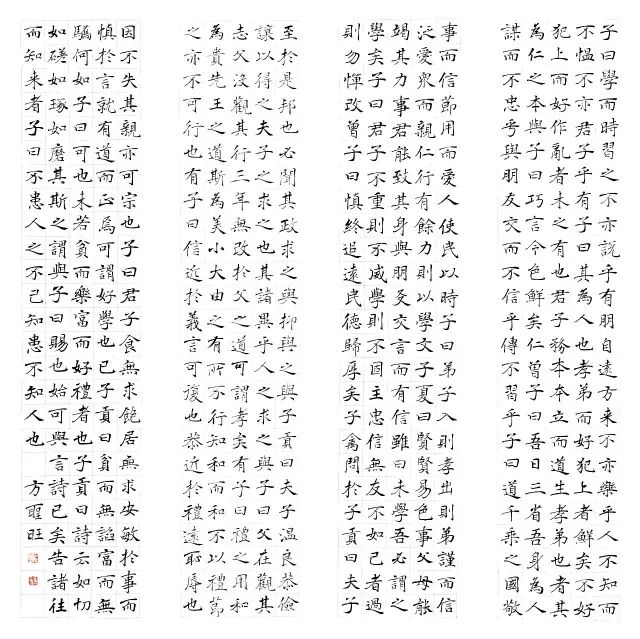 子曰學而時習之不亦說乎有朋自遠方來不亦樂乎人不知而
不慍不亦君子乎有子曰其為人也孝弟而好犯上者鮮矣不好
犯上而好作亂者未之有也君子務本本立而道生孝弟也者其
為仁之本與子曰巧言令色鮮矣仁曾子曰吾日三省吾身為人
謀而不忠乎與朋友交而不信乎傳不習乎子曰道千乘之國敬
事而信節用而愛人使民以時子曰弟子入則孝出則弟謹而信
泛愛眾而親仁行有餘力則以學文子夏曰賢賢易色事父母能
竭其力事君能致其身與朋友交言而有信雖曰未學吾必謂之
學矣子曰君子不重則不威學則不固主忠信無友不如己者過
則勿憚改曾子曰慎終追遠民德歸厚矣子禽問於子貢曰夫子
至於是邦也必聞其政求之與抑與之與子貢曰夫子溫良恭儉
讓以得之夫子之求之也其諸異乎人之求之與子曰父在觀其
志父沒觀其行三年無改於父之道可謂孝矣有子曰禮之用和
為貴先王之道斯為美小大由之有所不行知和而和不以禮節
之亦不可行也有子曰信近於義言可復也恭近於禮遠恥辱也
因不失其親亦可宗也子曰君子食無求飽居無求安敏於事而
慎於言就有道而正焉可謂好學也已子貢曰貧而無諂富而無
驕何如子曰可也未若貧而樂富而好禮者也子貢曰詩云如切
如磋如琢如磨其斯之謂與子曰賜也始可與言詩已矣告諸往
而知來者子曰不患人之不己知患不知人也 方聖旺